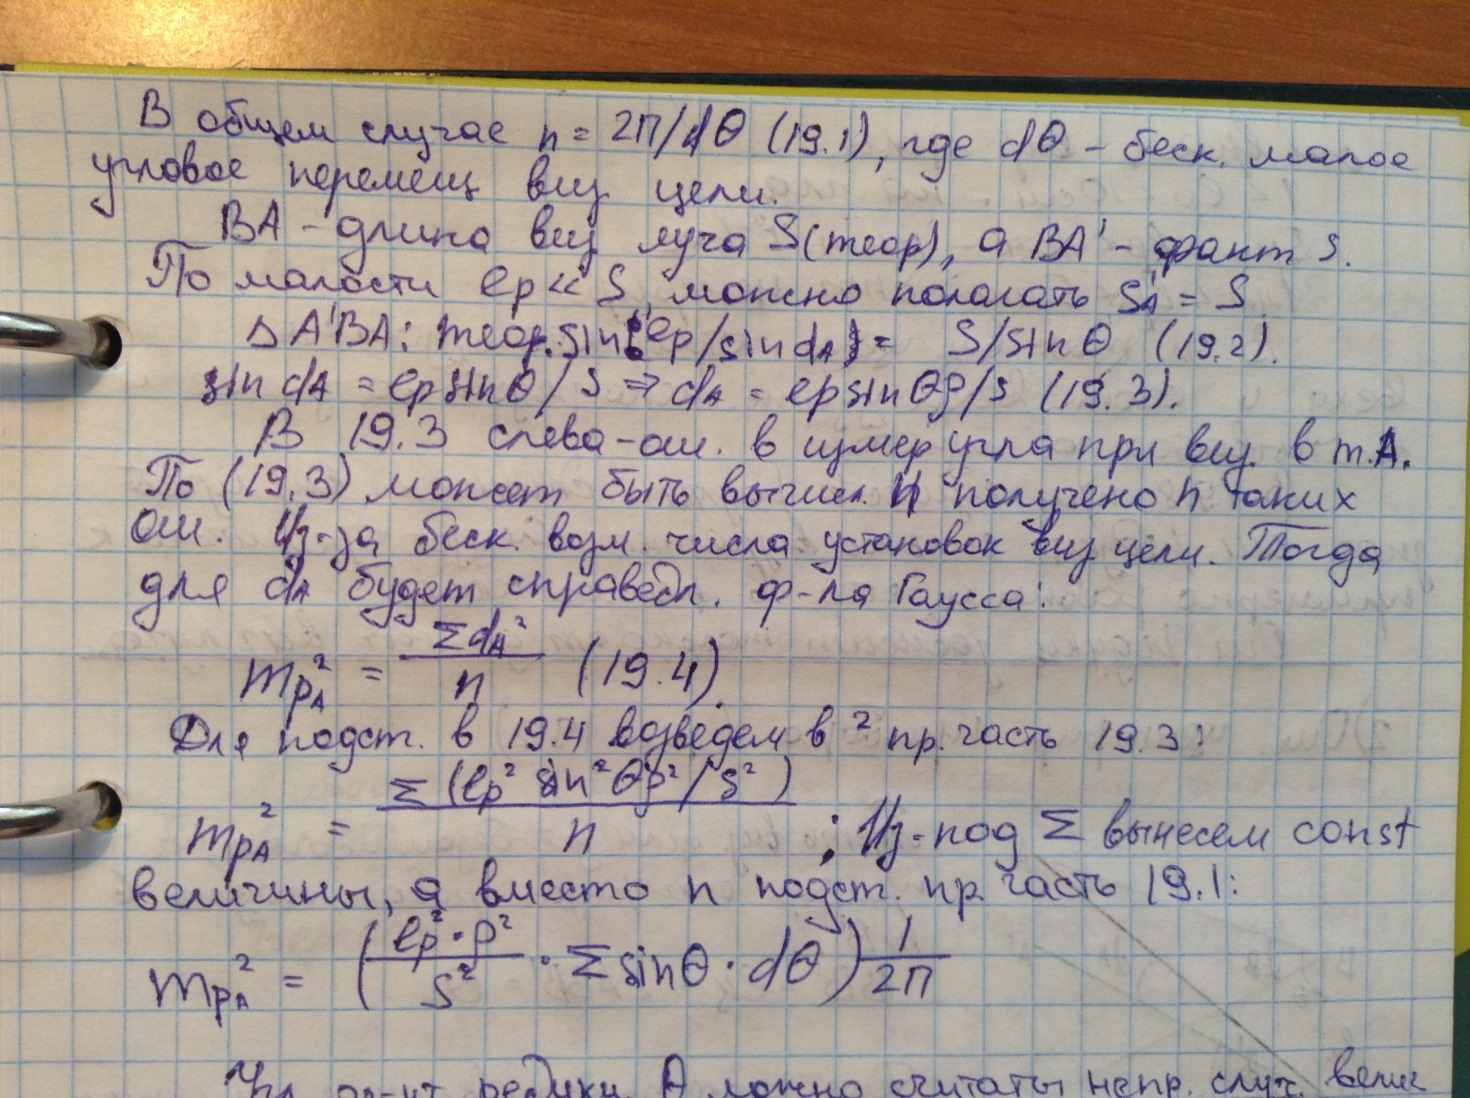 В общем случае n = 2П/dθ (19.1), где dθ - беск. малое
угловое перемещ виз цели.
ВА - длина виз луча S(теор), а ВА' - факт S.
По малости lp << S, можно полагать S'A = S
Δ A'BA: теор. sin lp/sin dA = S/sin θ (19.2).
sin dA = lp sin θ/S ⇒ dA = lp sin θρ/S (19.3).
В 19.3 слева-ош. в измер угла при виз. в т.А.
По (19.3) может быть вычисл. И получено n таких
ош. Из-за беск. возм. числа установок виз цели. Тогда
для dA будет справедл. ф-ла Гаусса:
mpA² = ΣdA²/n (19.4)
Для подст. в 19.4 возведем в ² пр. часть 19.3:
mpA² = Σ(lp² sin²θρ²/S²)/n ; Из-под Σ вынесем const
величины, а вместо n подст. пр. часть 19.1:
mpA² = (lp²·ρ²/S² · Σ sinθ · dθ) 1/2П
редукц. А можно считать непр. случ. велич